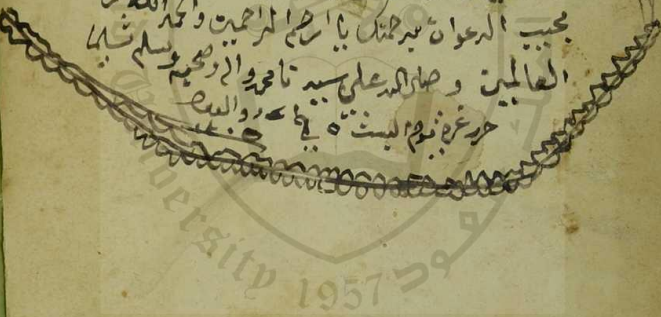 مجيب الدعوات برحمتك يا ارحم الراحمين والحمد لله رب
العالمين وصلى الله على سيدنا محمد واله وصحبه وسلم تسليما
حرر غرة يوم السبت ٥ في
University
1957